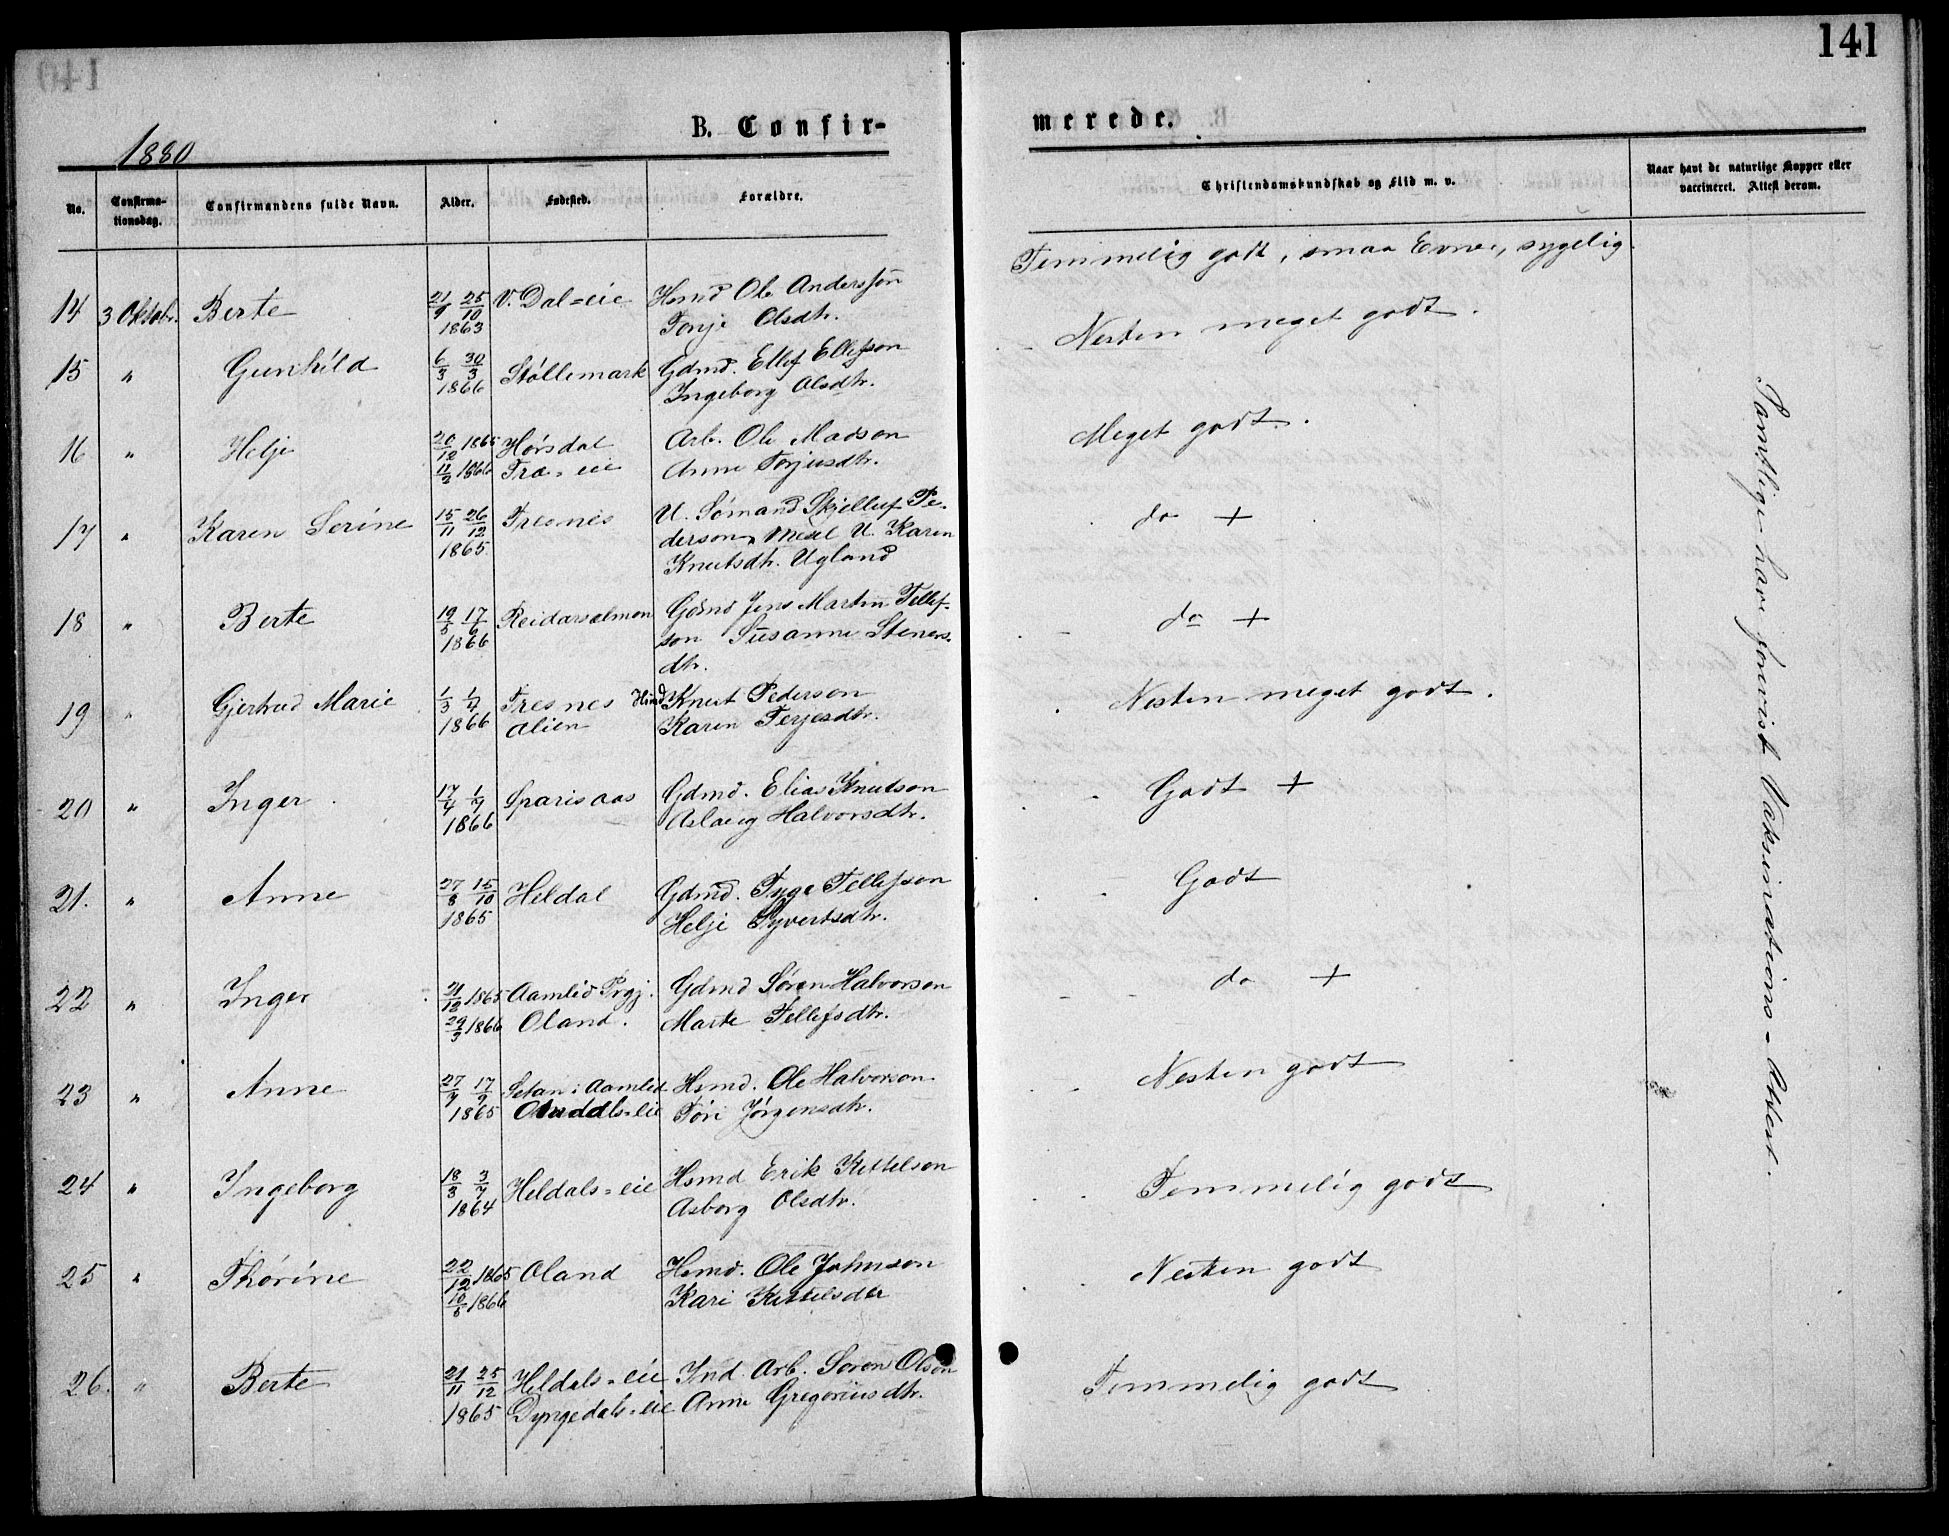 141
1880
B. Confir-
merede.
No.
Confirma-
tionsdag.
Confirmandens fulde Navn.
Alder.
Fødested.
Forældre.
Christendomskundskab og Flid m. v.
Naar havt de naturlige Kopper eller
vaccineret. Attest derom.
14 3 Oktobr. Berte 21/9 25/10 1863 V. Dal=eie Hsmd Ole Andersson
Tonje Olsdtr.
Temmelig godt, smaa Evner, sygelig.
15 " Gunhild 6/3 30/3 1866 Støllemark Gdmd. Ellef Ellefson
Ingeborg Olsdtr.
Nesten meget godt.
16 " Helje 20/12 1865 Hørsdal Arb. Ole Madson
11/2 1866 Træ=eie Anne Torjusdtr.
Meget godt.
17 " Karen Serine 15/11 26/12 1865 Tresnes U. Sømand Skjellef Pe-
derson, med U. Karen
Knutsdtr. Ugland
do +
18 " Berte 19/5 17/6 1866 Reidarsalmon Gdmd Jens Martin Tellef-
son Susanne Steners-
dtr.
do +
19 " Gjertrud Marie 1/3 1/4 1866 Tresnes Hsmd Knut Pederson
alien Karen Terjesdtr.
Nesten meget godt.
20 " Inger 17/4 1/7 1866 Sparisaas Gdmd. Elias Knutson
Aslaug Halvorsdtr.
Godt +
21. " Anne 27/8 15/10 1865 Heldal Gdmd. Tyge Tellefson
Helje Syvertsdtr.
Godt
22 " Inger 21/12 1865 Aamlid Prgj. Gdmd Søren Halvorson
29/3 1866 Oland. Marte Tellefsdtr.
do +
23 " Anne 27/7 17/9 1865 Setan i Aamlid Hsmd. Ole Halvorson
Tøri Jørgensdtr.
Nesten godt
24 " Ingeborg 18/3 3/7 1864 Heldals=eie Hsmd Erik Kittelson
Asborg Olsdtr.
Temmelig godt
25 " Thorine 22/12 1865 Oland Hsmd. Ole Johnson
10/5 1866 Kari Kittelsdtr
Nesten godt
26. " Berte 21/11 25/12 1865 Heldals=eie Ind. Arb. Soren Olson
Dyngedals=eie Anne Gregoriusdtr.
Temmelig godt
Samtlige have forevist Vaksinations-Attest.